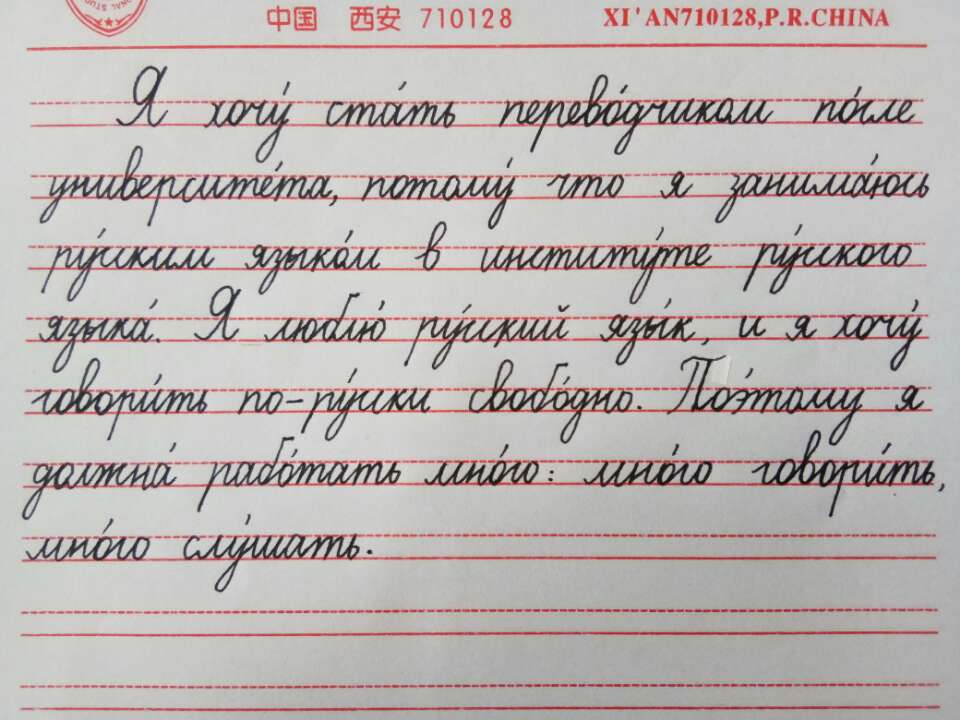 ONAL STUD
中国 西安 710128 XI'AN710128,P.R.CHINA
Я хочу́ ста́ть перево́дчиком по́сле
университе́та, потому́ что я занима́юсь
ру́сским языко́м в институ́те ру́сского
языка́. Я люблю́ ру́сский язы́к, и я хочу́
говори́ть по-ру́сски свобо́дно. Поэ́тому я
должна́ рабо́тать мно́го: мно́го говори́ть,
мно́го слу́шать.